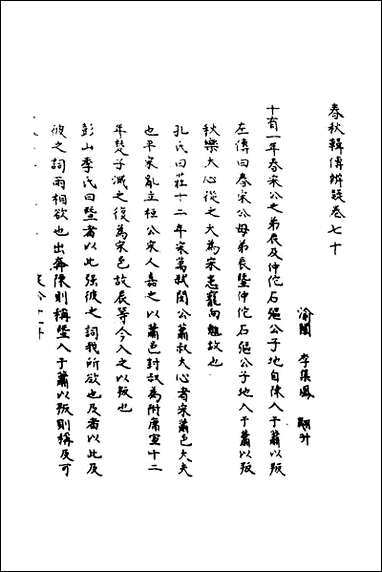 春秋輯傳辨疑卷七十
渝關 李集鳳 翽升
十有一年春宋公之弟辰及仲佗石彄公子地自陳入于蕭以叛
左傳曰春宋公母弟辰暨仲佗石彄公子地入于蕭以叛
秋樂大心從之大為宋患寵向魋故也
孔氏曰莊十二年宋萬弒閔公蕭叔大心者宋蕭邑大夫
也平宋亂立桓公宋人嘉之以蕭邑封叔為附庸宣十二
年楚子滅之復為宋邑故辰等今入之以叛也
彭山季氏曰暨者以此强彼之詞我所欲也及者以此及
彼之詞兩相欲也出奔陳則稱暨入于蕭以叛則稱及可